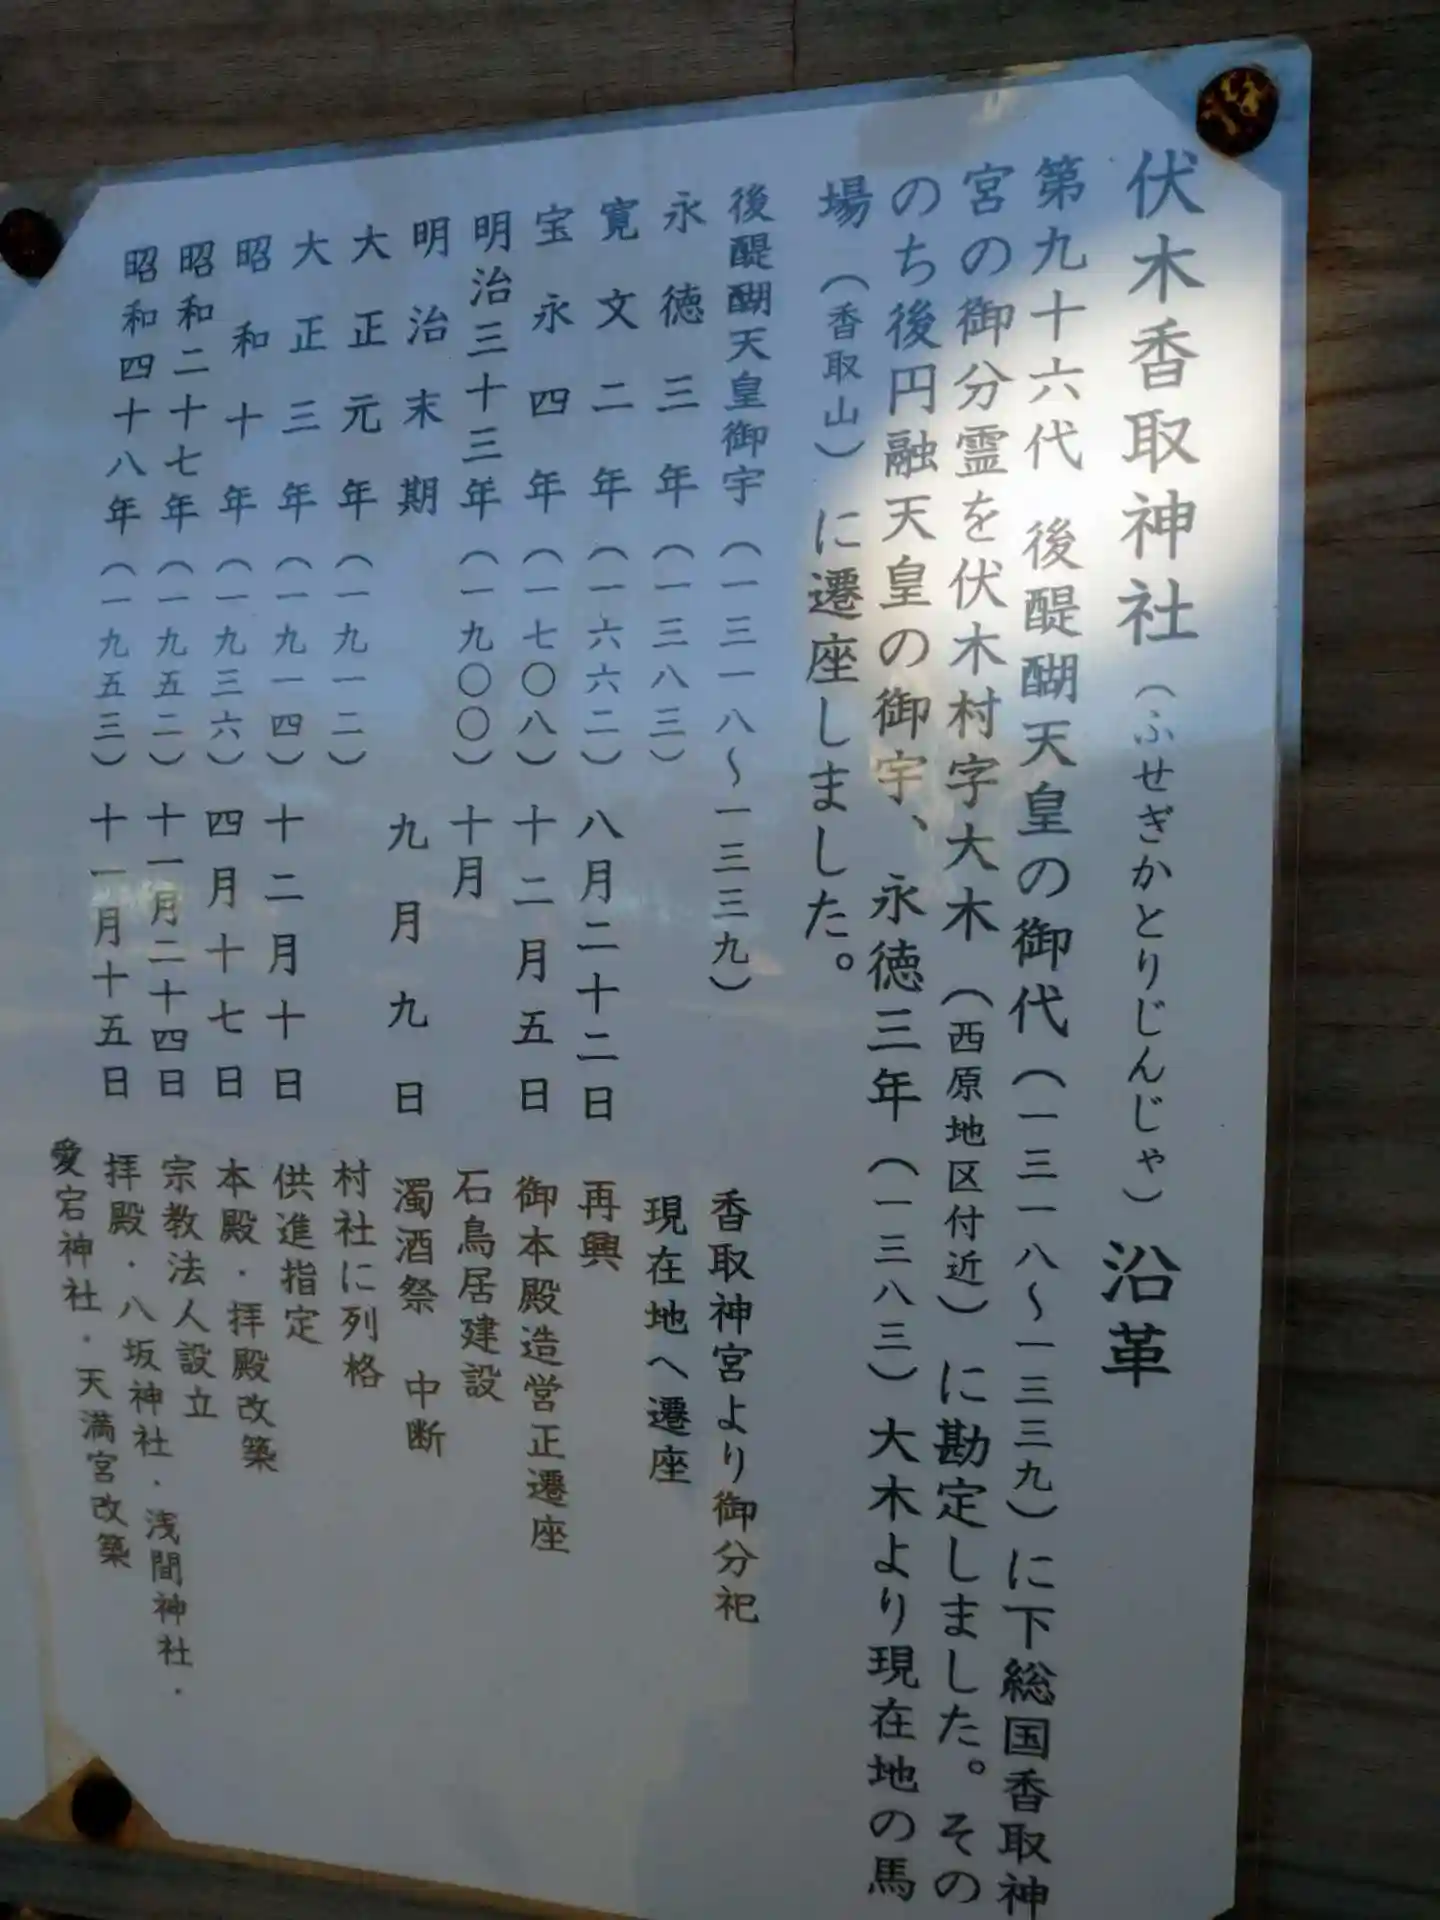 伏木香取神社（ふせぎかとりじんじゃ）沿革
第九十六代 後醍醐天皇の御代（一三一八～一三三九）に下総国香取神
宮の御分霊を伏木村字大木（西原地区付近）に勘定しました。その
のち後円融天皇の御宇、永徳三年（一三八三）大木より現在地の馬
場（香取山）に遷座しました。
後醍醐天皇御宇（一三一八～一三三九） 香取神宮より御分祀
永徳三年（一三八三） 現在地へ遷座
寛文二年（一六六二）八月二十二日 再興
宝永四年（一七〇八）十二月五日 御本殿造営正遷座
明治三十三年（一九〇〇）十月 石鳥居建設
明治末期 九月九日 濁酒祭 中断
大正元年（一九一二） 村社に列格
大正三年（一九一四）十二月十日 供進指定
昭和十年（一九三六）四月十七日 本殿・拝殿改築
昭和二十七年（一九五二）十一月二十四日 宗教法人設立
昭和四十八年（一九五三）十一月十五日 拝殿・八坂神社・浅間神社・
愛宕神社・天満宮改築